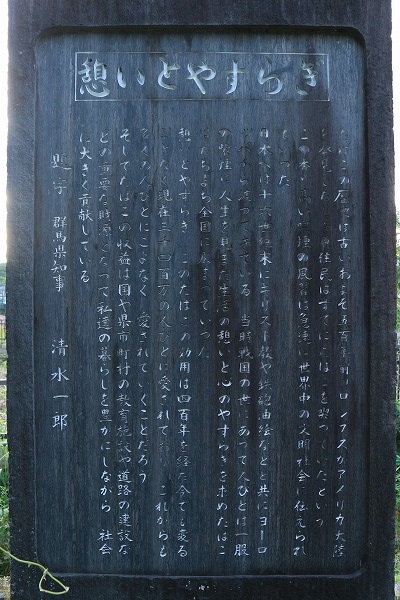 憩いとやすらぎ
たばこの歴史は古いおよそ五百年前コロンブスがアメリカ大陸
を発見した 原住民はすでにたばこを喫っていたという
この不思議な煙の風習は急速に世界中の文明社会に伝えられ
ていった
日本へは十六世紀末にキリスト教や鉄砲油絵などと共にヨーロ
当時戦国の世にあって人びとは一服
の紫煙に人生を見また生活の憩いと心のやすらぎを求めたばこ
はたちまち全国に広まっていった
憩いとやすらぎ このたばこの効用は四百年を経た今でも変る
ことなく現在三千四百万の人びとに愛されており これからも
多くの人びとにこよなく 愛されていくことだろう
そしてたばこの収益は国や県市町村の教育施設や道路の建設な
どの重要な財源となって私達の暮らしを豊かにしながら 社会
に大きく貢献している
題字 群馬県知事 清水一郎